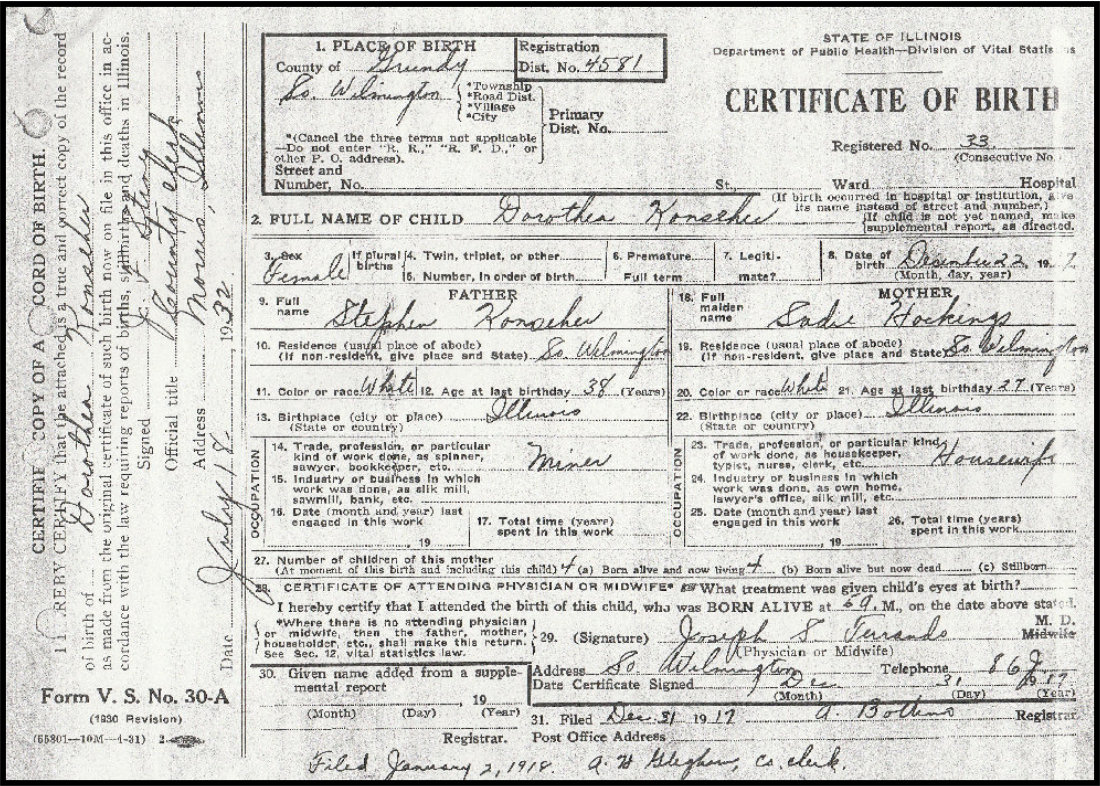 CERTIFIE COPY OF A CORD OF BIRTH.
11 REBY CERTIFY that the attached is a true and correct copy of the record
of birth of Dorothea Konscher
as made from the original certificate of such birth now on file in this office in ac-
cordance with the law requiring reports of births, stillbirths and deaths in Illinois.
Signed
Official title County Clerk
Address Morris, Illinois
Date July 18, 1932
Form V. S. No. 30-A
(1930 Revision)
(65801—10M—4-31) 2
STATE OF ILLINOIS
Department of Public Health—Division of Vital Statis s
CERTIFICATE OF BIRTH
Registered No. 33
(Consecutive No.
1. PLACE OF BIRTH
County of Grundy
Registration
Dist. No. 4581
So. Wilmington
*Township
*Road Dist.
*Village
*City
Primary
Dist. No.
*(Cancel the three terms not applicable
—Do not enter "R. R.," "R. F. D.," or
other P. O. address).
Street and
Number, No. St., Ward Hospital
(If birth occurred in hospital or institution, give
its name instead of street and number.)
2. FULL NAME OF CHILD Dorothea Konscher
(If child is not yet named, make
supplemental report, as directed.
3. Sex Female
If plural births
4. Twin, triplet, or other
5. Number, in order of birth
6. Premature
Full term
7. Legiti-
mate?
8. Date of
birth December 22, 19
(Month, day, year)
FATHER
9. Full
name Stephen Konscher
10. Residence (usual place of abode)
(If non-resident, give place and State) So. Wilmington
11. Color or race White 12. Age at last birthday 38 (Years)
13. Birthplace (city or place) Illinois
(State or country)
OCCUPATION
14. Trade, profession, or particular
kind of work done, as spinner,
sawyer, bookkeeper, etc. Miner
15. Industry or business in which
work was done, as silk mill,
sawmill, bank, etc.
16. Date (month and year) last
engaged in this work
, 19
17. Total time (years)
spent in this work
MOTHER
18. Full
maiden
name Sadie Hockings
19. Residence (usual place of abode)
(If non-resident, give place and State) So. Wilmington
20. Color or race White 21. Age at last birthday 27 (Years)
22. Birthplace (city or place) Illinois
(State or country)
OCCUPATION
23. Trade, profession, or particular kind
of work done, as housekeeper,
typist, nurse, clerk, etc. Housewife
24. Industry or business in which
work was done, as own home,
lawyer's office, silk mill, etc.
25. Date (month and year) last
engaged in this work
, 19
26. Total time (years)
spent in this work
27. Number of children of this mother
(At moment of this birth and including this child) 4 (a) Born alive and now living 4 (b) Born alive but now dead (c) Stillborn
28. CERTIFICATE OF ATTENDING PHYSICIAN OR MIDWIFE* What treatment was given child's eyes at birth?
I hereby certify that I attended the birth of this child, who was BORN ALIVE at M., on the date above stated.
*Where there is no attending physician
or midwife, then the father, mother,
householder, etc., shall make this return.
See Sec. 12, vital statistics law.
29. (Signature) Joseph S. Ferrando M. D.
Midwife
(Physician or Midwife)
Address So. Wilmington Telephone
Date Certificate Signed Dec 31 1917
(Month) (Day) (Year)
30. Given name added from a supple-
mental report
, 19
(Month) (Day) (Year)
Registrar.
31. Filed Dec. 31 1917 Registrar
Post Office Address
Filed January 2, 1918. co. clerk.